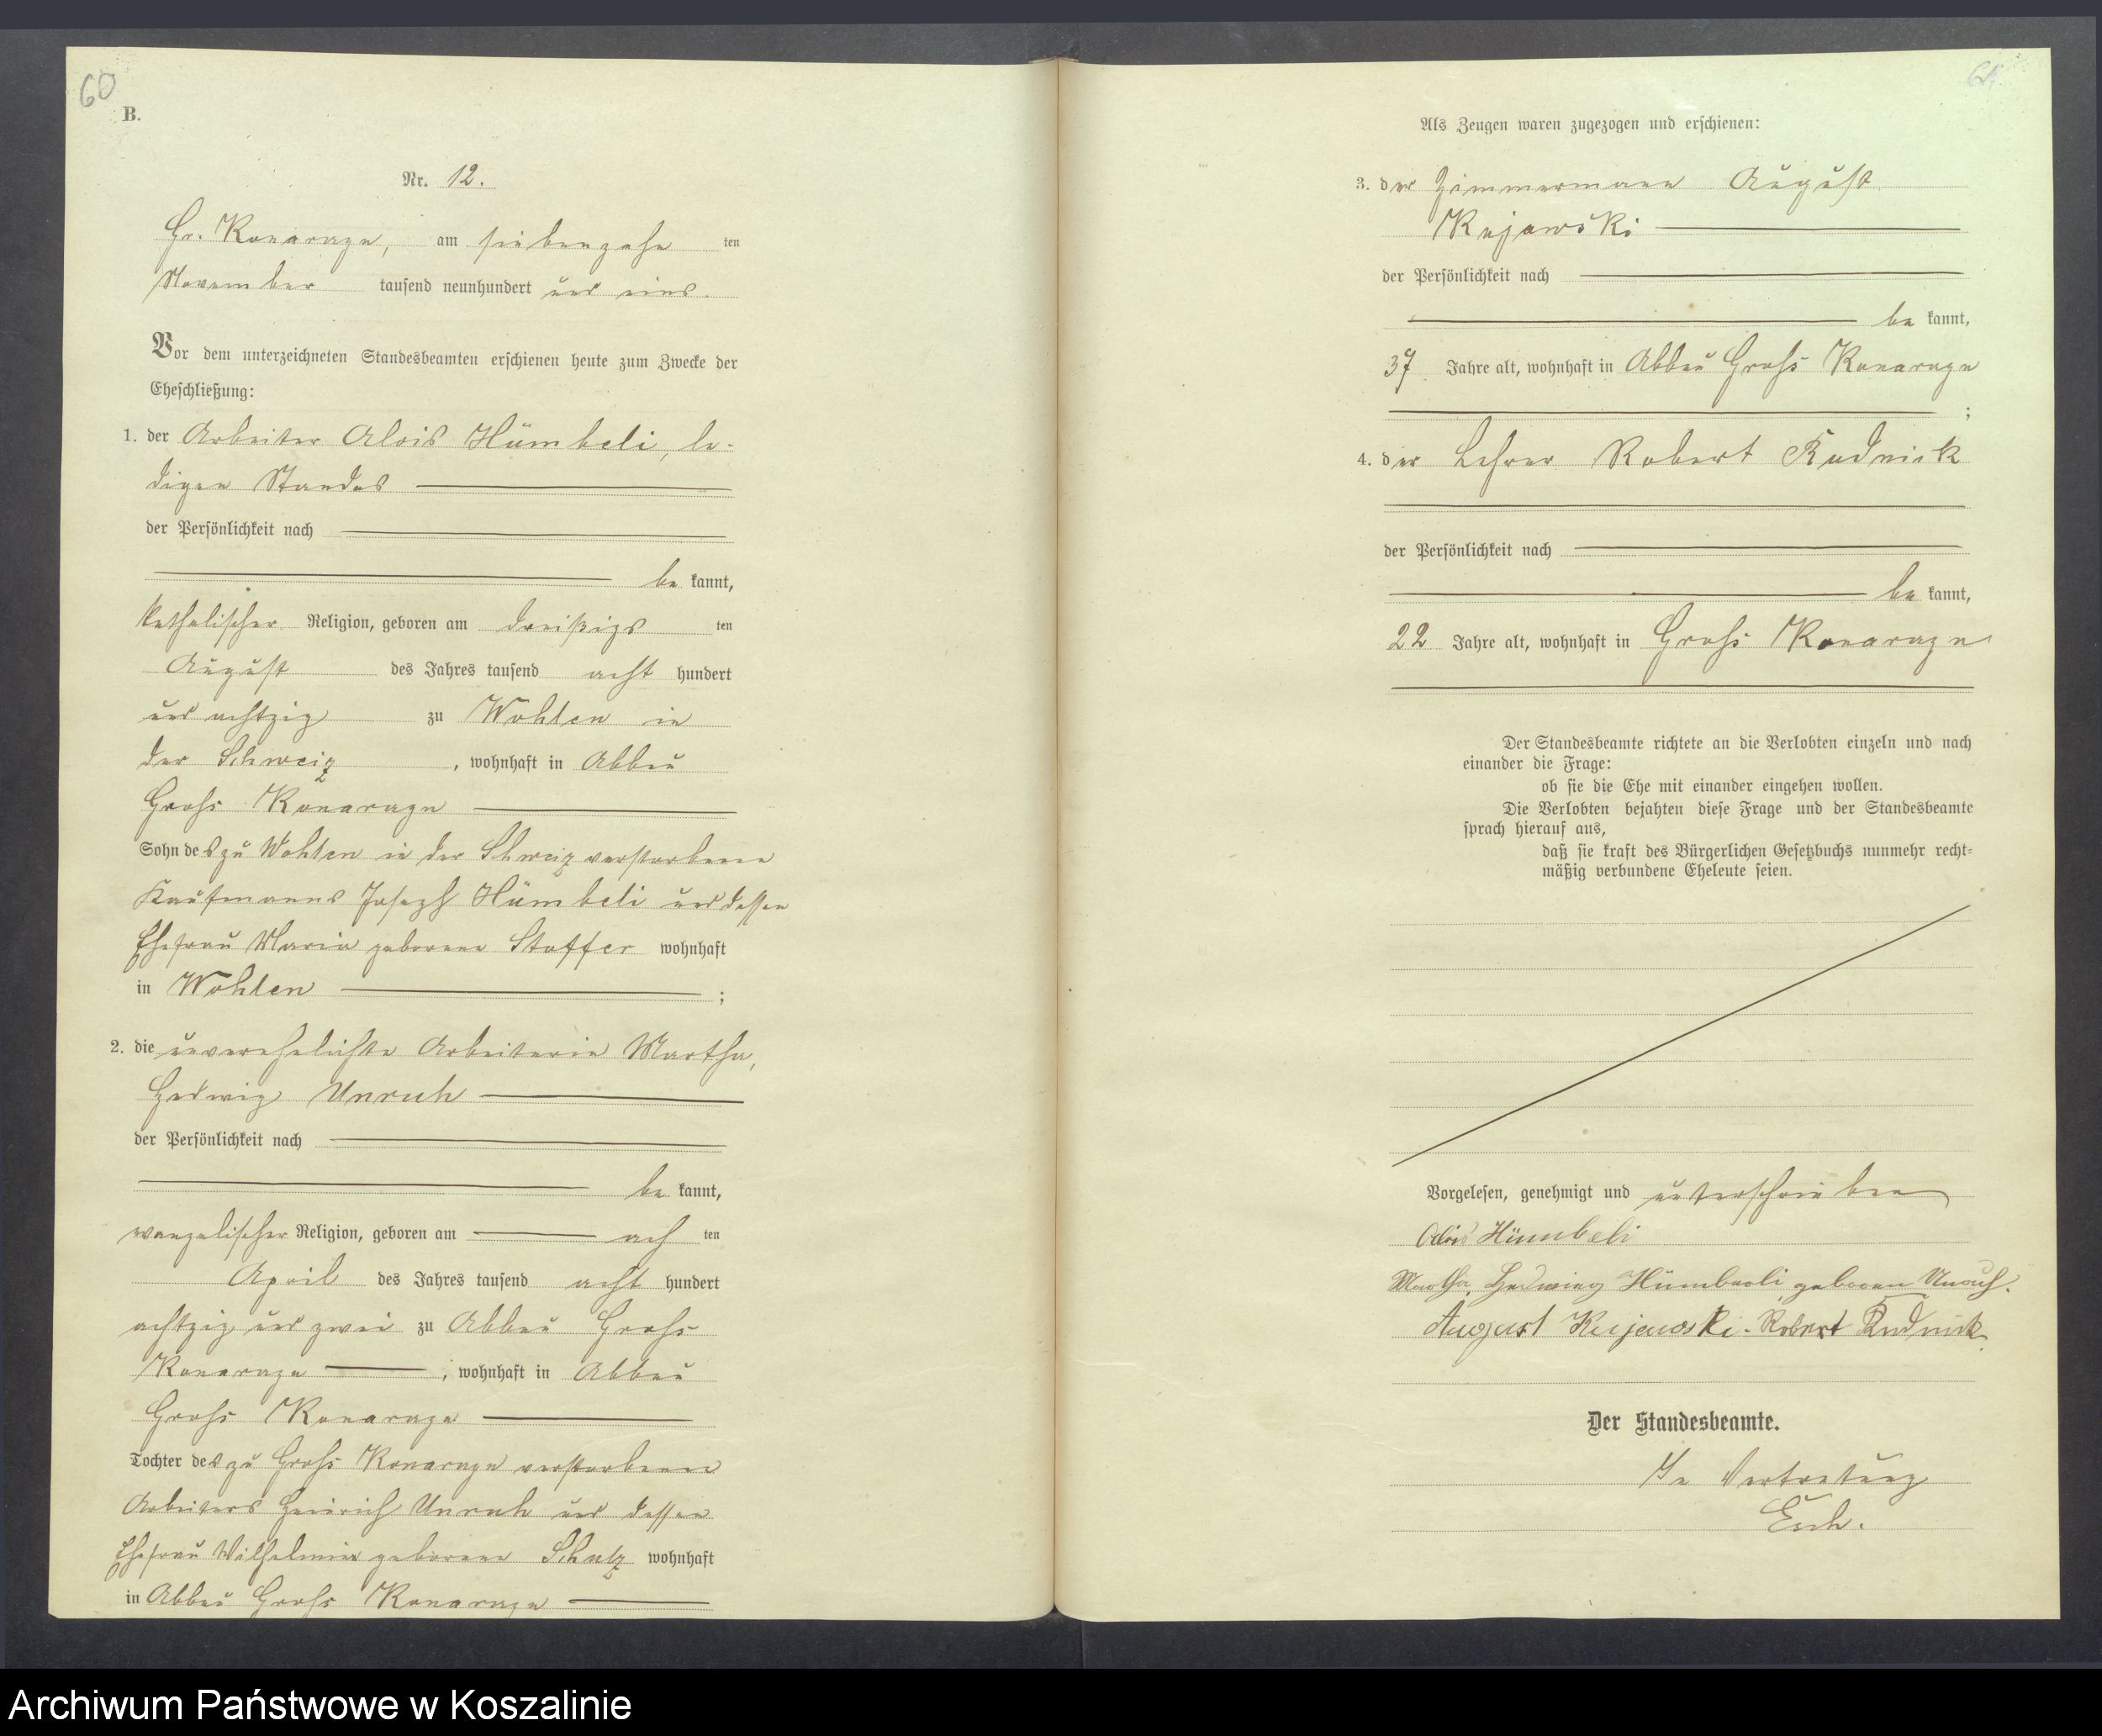 60
B.
Nr. 12.
Gr. Konarzyn, am siebenzehn ten
November tausend neunhundert und eins.
Vor dem unterzeichneten Standesbeamten erschienen heute zum Zwecke der
Eheschließung:
1. der Arbeiter Alois Hümbeli, le-
digen Standes
der Persönlichkeit nach
be kannt,
katholischer Religion, geboren am dreißigs ten
August des Jahres tausend acht hundert
und achtzig zu Wohlen in
der Schweiz, wohnhaft in Abbau
Groß Konarzyn
Sohn des zu Wohlen in der Schweiz verstorbenen
Kaufmanns Joseph Hümbeli und dessen
Ehefrau Maria geborene Stoffer wohnhaft
in Wohlen ;
2. die unverehelichte Arbeiterin Martha,
Hedwig Unruh
der Persönlichkeit nach
be kannt,
evangelischer Religion, geboren am ach ten
April des Jahres tausend acht hundert
achtzig und zwei zu Abbau Groß
Konarzyn, wohnhaft in Abbau
Groß Konarzyn
Tochter des zu Groß Konarzyn verstorbenen
Arbeiters Heinrich Unruh und dessen
Ehefrau Wilhelmine geborene Schulz wohnhaft
in Abbau Groß Konarzyn
Als Zeugen waren zugezogen und erschienen:
3. der Zimmermann August
Kujawski
der Persönlichkeit nach
be kannt,
37 Jahre alt, wohnhaft in Abbau Groß Konarzyn
;
4. der Lehrer Robert Rudnick
der Persönlichkeit nach
be kannt,
22 Jahre alt, wohnhaft in Groß Konarzyn
Der Standesbeamte richtete an die Verlobten einzeln und nach
einander die Frage:
ob sie die Ehe mit einander eingehen wollen.
Die Verlobten bejahten diese Frage und der Standesbeamte
sprach hierauf aus,
daß sie kraft des Bürgerlichen Gesetzbuchs nunmehr recht-
mäßig verbundene Eheleute seien.
Vorgelesen, genehmigt und unterschrieben
Alois Hümbeli
Martha, Hedwig Hümbeli geboren Unruh.
August Kujawski. Robert Rudnick.
Der Standesbeamte.
In Vertretung
Esch.
Archiwum Państwowe w Koszalinie